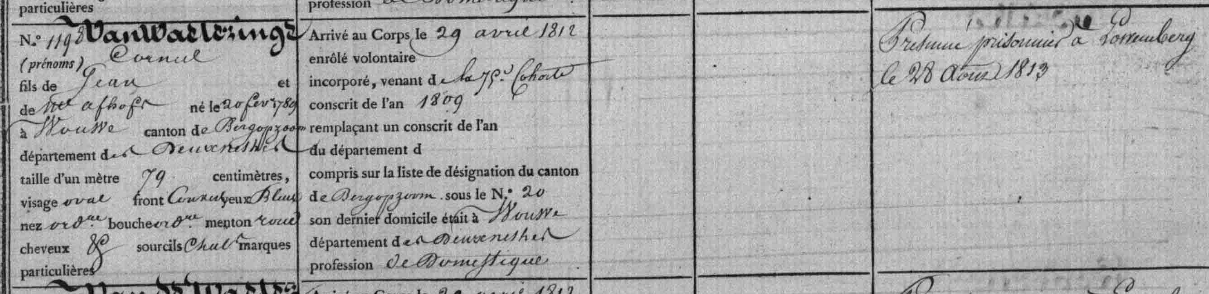 particulières
N.º 1198 VanWaelezinge
(prénoms) Cornul
fils de Jean et
de né le 20 fevr 1789
à Wouwe canton de Bergopzoom
département des Deuxnethes
taille d'un mètre 79 centimètres,
visage oval front Couvert yeux Bleus
nez ord.re bouche ord.re menton rond
cheveux & sourcils Chat.s marques
particulières
profession de Domestique
Arrivé au Corps le 29 avril 1812
enrôlé volontaire
incorporé, venant de la 75.e Cohorte
conscrit de l'an 1809
remplaçant un conscrit de l'an
du département d
compris sur la liste de désignation du canton
de Bergopzoom sous le N.º 20
son dernier domicile était à Wouwe
département des Deuxnethes
profession de Domestique
Arrivé au Corps le 29 avril 1812
Présumé prisonnier à Lowemberg
le 28 Aout 1813